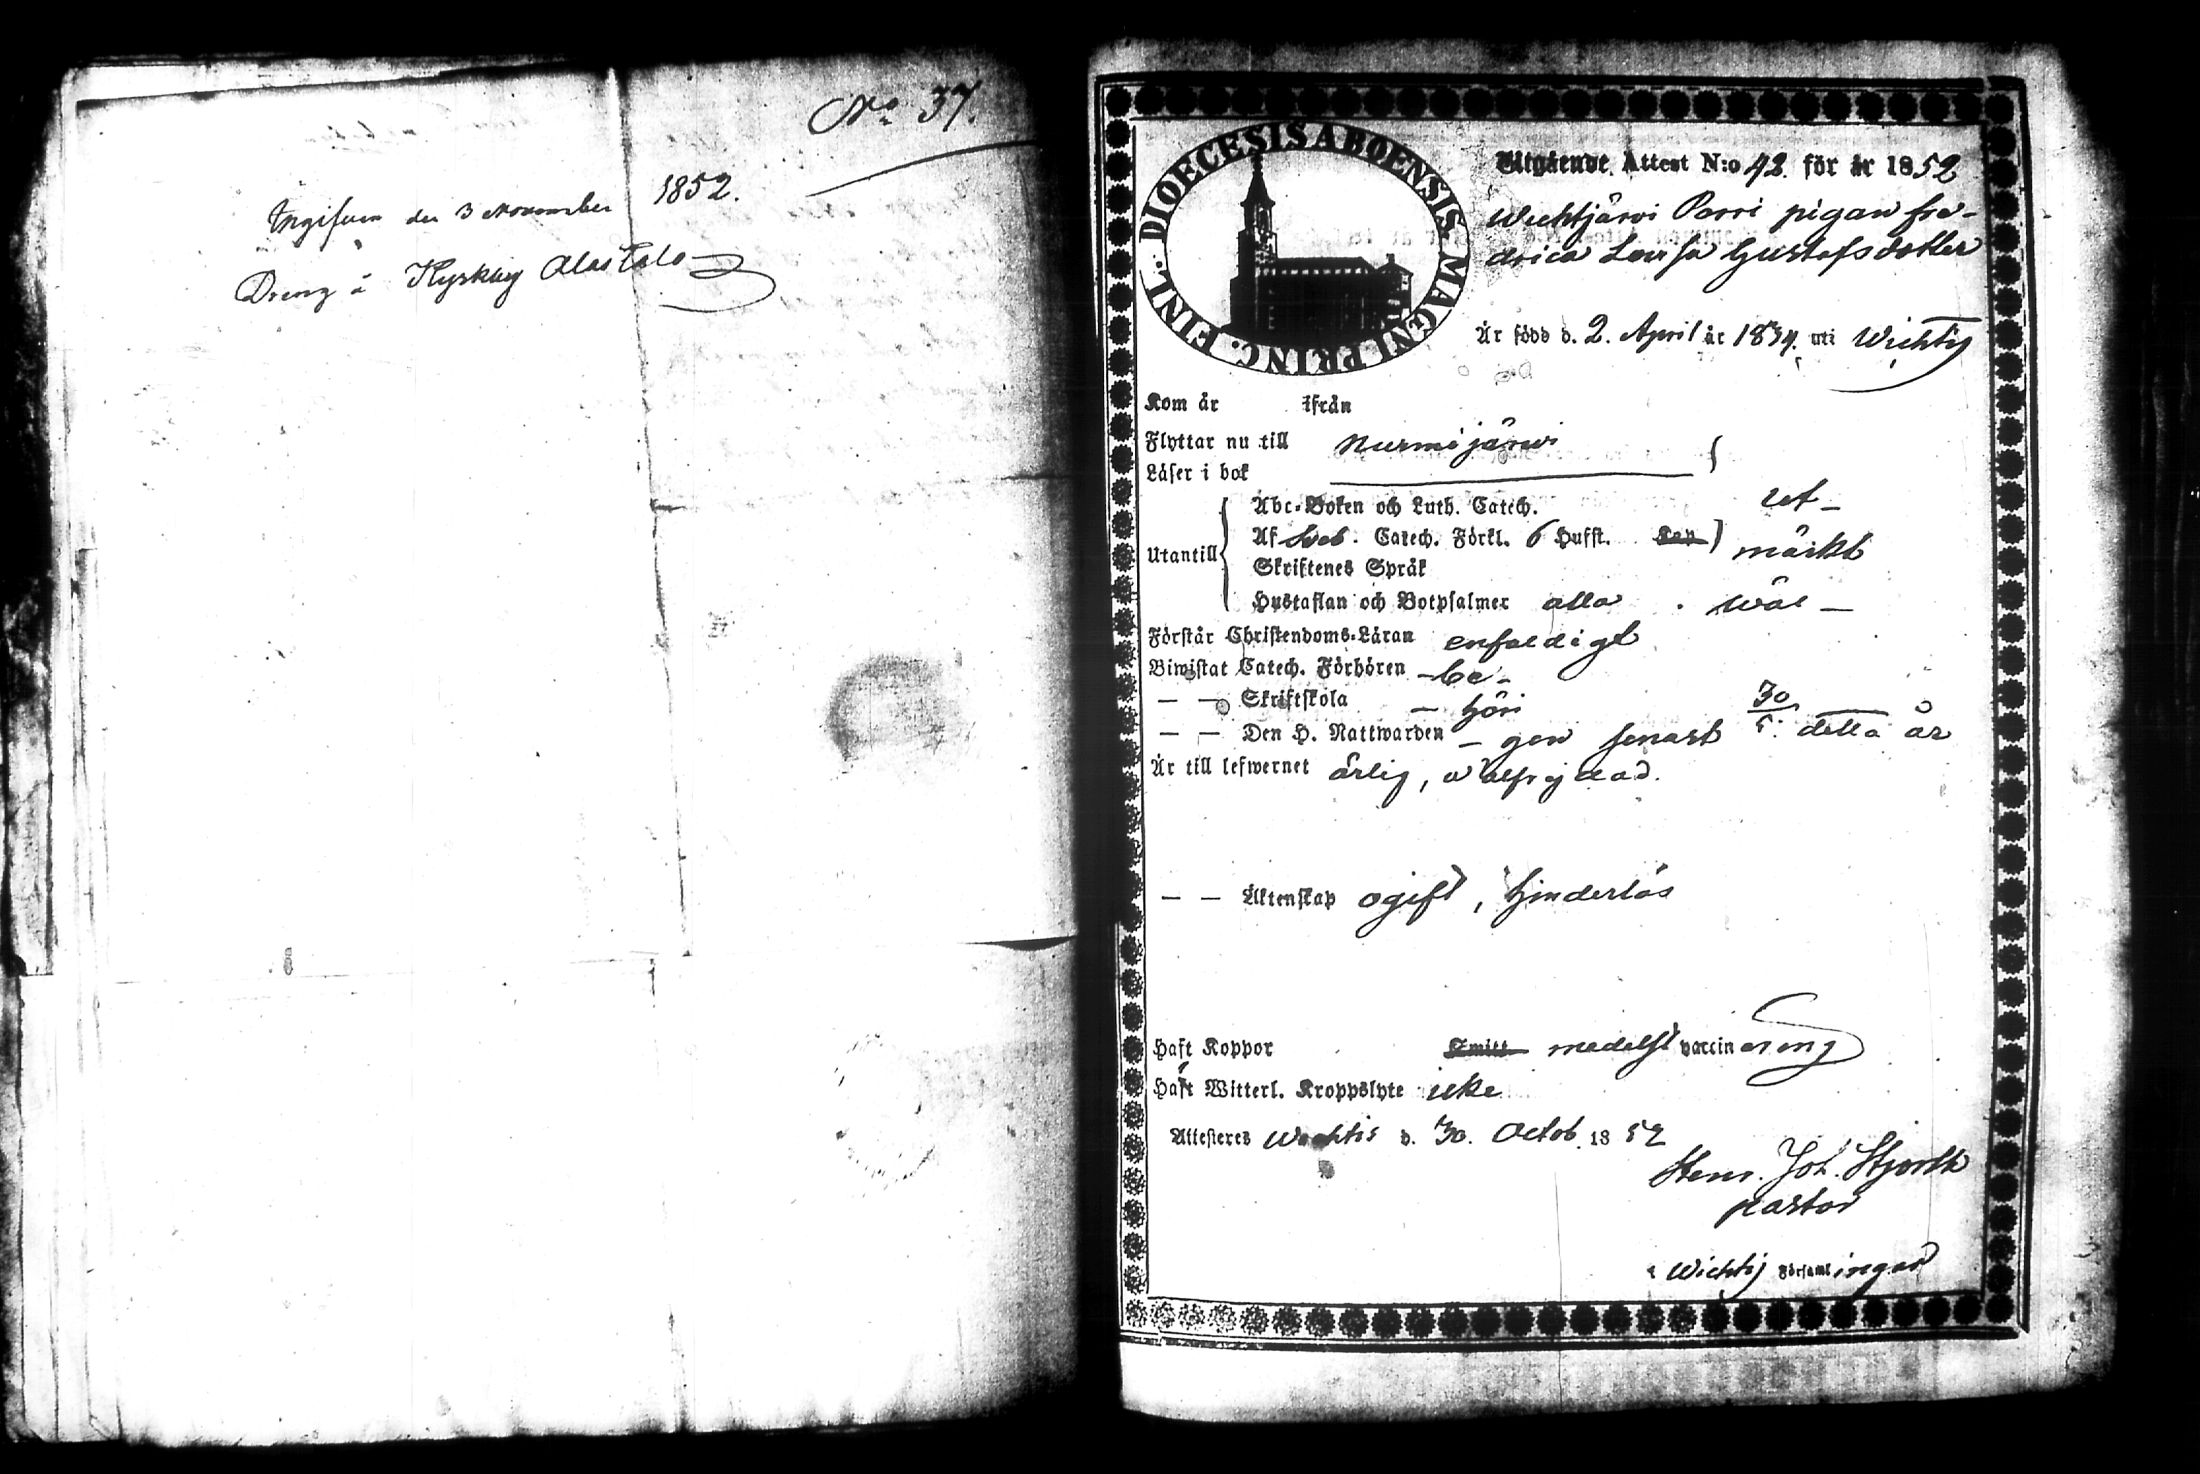 No 37.
Ingifven den 3 November 1852.
Dreng å Kyrkby Alastalo
DIOECESIS ABOENSIS. MAGNI PRINC. FINL.
Utgående Attest N:o 42. för år 1852
Wichtjärvi Porri pigan Fre-
drica Lovisa Gustafsdotter
Är född d. 2. April år 1834. uti Wichtis
Kom år ifrån
Flyttar nu till Nurmijärvi
Läser i bok
Utantill
Abc-Boken och Luth. Catech. ut-
Af Sveb. Catech. Förkl. 6 Hufst. Cap märkt
Skriftenes Språk
Hustaflan och Botpsalmer alla . wäl -
Förstår Christendoms-Läran enfaldigt
Biwistat Catech. Förhören - be -
— — Skriftskola - hön
— — Den H. Nattwarden - gen senast 30/5. detta år
Är till lefwernet ärlig, wälfrejdad.
— — Äktenskap ogift, hinderlös
Haft Koppor Smitt medelst vaccinering
Haft Witterl. Kroppslyte icke
Attesteres Wichtis d. 30. Octob. 1852
Henr. Joh. Hjorth
pastor
i Wichtis Församlingar